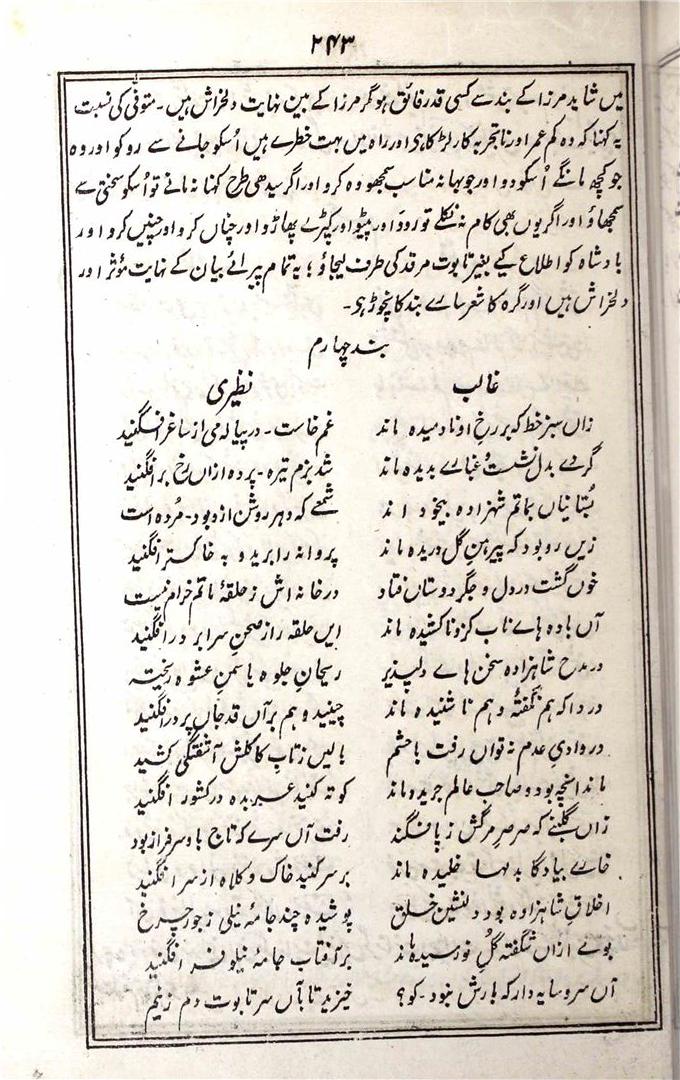 ۲۴۳
میں شاید مرزا کے بند سے کسی قدر فائق ہو مگر مرزا کے بین نہایت دلخراش ہیں۔ متوفّی کی نسبت
یہ کہنا کہ وہ کم عمر اور ناتجربہ کار لڑکا ہی اور راہ میں بہت خطرے ہیں اُسکو جانے سے روکو اور وہ
جو کچھ مانگے اُسکو دو اور جو بہانہ مناسب سمجھو وہ کرو اور اگر سیدھی طرح کہنا نہ مانے تو اُسکو سختی سے
سمجھاؤ اور اگر یوں بھی کام نہ نکلے تو روؤ اور پیٹو اور کپڑے پھاڑو اور چناں کرو اور چنیں کرو اور
بادشاہ کو اطلاع کیے بغیر تابوت مرقد کی طرف لیجاؤ ؛ یہ تمام پیرائے بیان کے نہایت مؤثر اور
دلخراش ہیں اور گرہ کا شعر سارے بند کا نچوڑ ہی۔
بند چہارم
غالب
زاں سبز خط کہ بر رخِ او نادمیدہ ماند
گردے بدل نشست و غبارے بدیدہ ماند
بُستانیاں بماتم شہزادہ بیخود اند
زیں رو بود کہ پیرہنِ گل دریدہ ماند
خوں گشت در دل و جگرِ دوستاں فتاد
آں بادہ ہاے ناب کزو ناکشیدہ ماند
در مدح شاہزادہ سخن ہاے دلپذیر
دردا کہ ہم نگفتہ و ہم ناشنیدہ ماند
در وادیِ عدم نہ تواں رفت با حشم
ماند انچہ بود و صاحب عالم جریدہ ماند
زاں گلبنے کہ صرصرِ مرگش ز پا فگند
خارے بیادگار بدلہا خلیدہ ماند
اخلاقِ شاہزادہ بود دلنشینِ خلق
بوے ازاں شگفتہ گلِ نورسیدہ ماند
آں سرو سایہ دار کہ بارش نبود۔ کو؟
نظیری
غم خاست۔ در پیالہ می از ساغر افگنید
شد بزم تیرہ۔ پردہ ازاں رخ بر افگنید
شمعے کہ دہر روشن ازو بود۔ مُردہ است
پروانہ را برید و بہ خاکستر افگنید
در خانہ اش ز حلقۂ ماتم خرام نیست
ایں حلقہ را ز صحنِ سرا بر در افگنید
ریحانِ جلوہ یا سمنِ عشوہ ریختہ
چینید و ہم برآں قدِ جاں پرور افگنید
بالیں ز تابِ کاکلش آشفتگی کشید
کوتہ کنید عربدہ در کشور افگنید
رفت آں سرے کہ تاج باو سرفراز بود
بر سر کنید خاک و کلاہ از سر افگنید
پوشیدہ چند جامۂ نیلی ز جورِ چرخ
بر آفتاب جامۂ نیلوفر افگنید
خیزید تا بآں سرِ تابوت دم زنیم